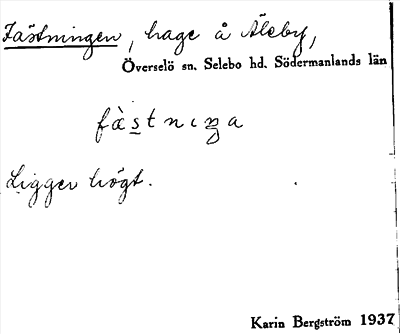 Fästningen, hage å Äleby,
Överselö sn. Selebo hd. Södermanlands län
fàstnıŋa
Ligger högt.
Karin Bergström 1937